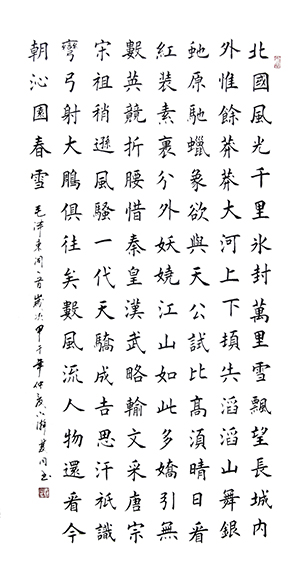 北國風光千里氷封萬里雪飄望長城内
外惟餘莽莽大河上下頓失滔滔山舞銀
虵原馳蠟象欲與天公試比高須晴日看
紅装素裹分外妖嬈江山如此多嬌引無
數英競折腰惜秦皇漢武略輸文采唐宗
宋祖稍遜風騷一代天驕成吉思汗祇識
彎弓射大鵰俱往矣數風流人物還看今
朝沁園春雪
毛泽東词一首歲次甲午年仲夏